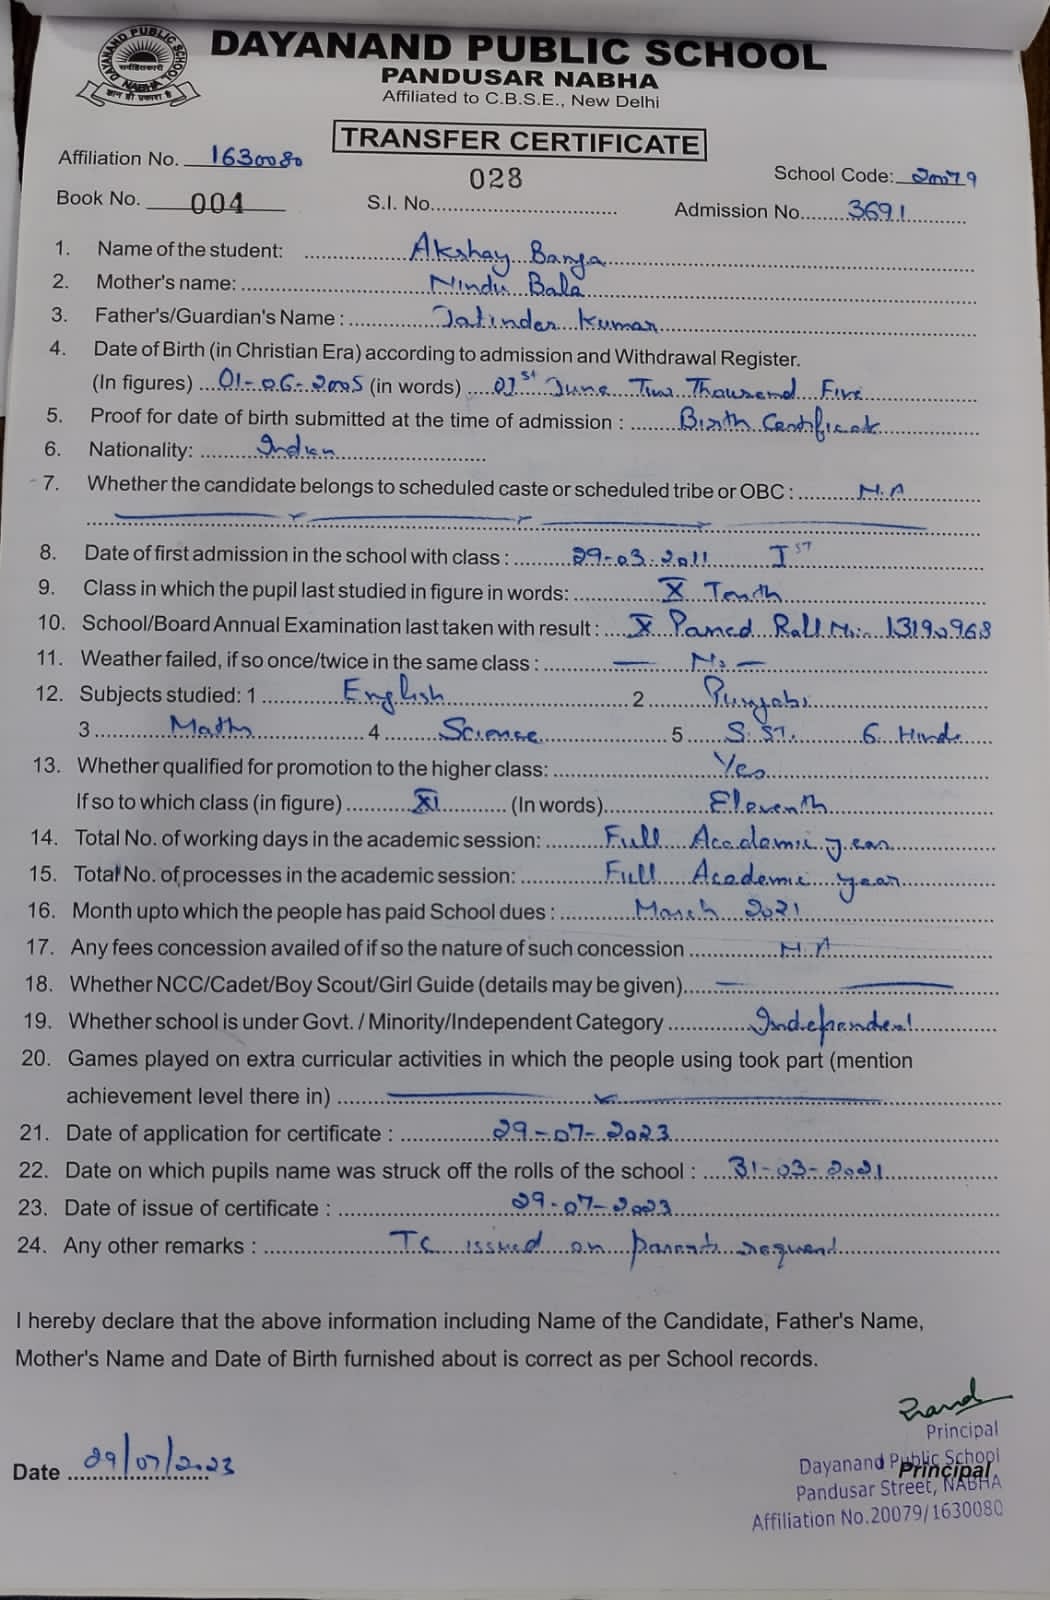 DAYANAND PUBLIC SCHOOL
NABHA
DAYANAND PUBLIC SCHOOL
PANDUSAR NABHA
Affiliated to C.B.S.E., New Delhi
TRANSFER CERTIFICATE
Affiliation No. 1630080
028
School Code: 20079
Book No. 004
S.I. No.
Admission No. 3691
1. Name of the student: Akshay Banga
2. Mother's name: Nindu Bala
3. Father's/Guardian's Name : Jatinder Kumar
4. Date of Birth (in Christian Era) according to admission and Withdrawal Register.
(In figures) 01-06-2005 (in words) 01st June Two Thousand Five
5. Proof for date of birth submitted at the time of admission : Birth Certificate
6. Nationality: Indian
7. Whether the candidate belongs to scheduled caste or scheduled tribe or OBC : N.A
8. Date of first admission in the school with class : 29-03-2011 IST
9. Class in which the pupil last studied in figure in words: X Tenth
10. School/Board Annual Examination last taken with result : X Passed Roll No:- 13190968
11. Weather failed, if so once/twice in the same class : — No —
12. Subjects studied: 1 English 2 Punjabi
3 Maths 4 Science 5 S.ST. 6 Hindi
13. Whether qualified for promotion to the higher class: Yes
If so to which class (in figure) XI (In words) Eleventh
14. Total No. of working days in the academic session: Full Academic year
15. Total No. of processes in the academic session: Full Academic year
16. Month upto which the people has paid School dues : March 2021
17. Any fees concession availed of if so the nature of such concession N.A
18. Whether NCC/Cadet/Boy Scout/Girl Guide (details may be given)
19. Whether school is under Govt. / Minority/Independent Category Independent
20. Games played on extra curricular activities in which the people using took part (mention
achievement level there in)
21. Date of application for certificate : 29-07-2023
22. Date on which pupils name was struck off the rolls of the school : 31-03-2021
23. Date of issue of certificate : 29-07-2023
24. Any other remarks : TC issued on parents request
I hereby declare that the above information including Name of the Candidate, Father's Name,
Mother's Name and Date of Birth furnished about is correct as per School records.
Date 29/07/2023
Principal
Dayanand Public School
Principal
Pandusar Street, NABHA
Affiliation No.20079/1630080